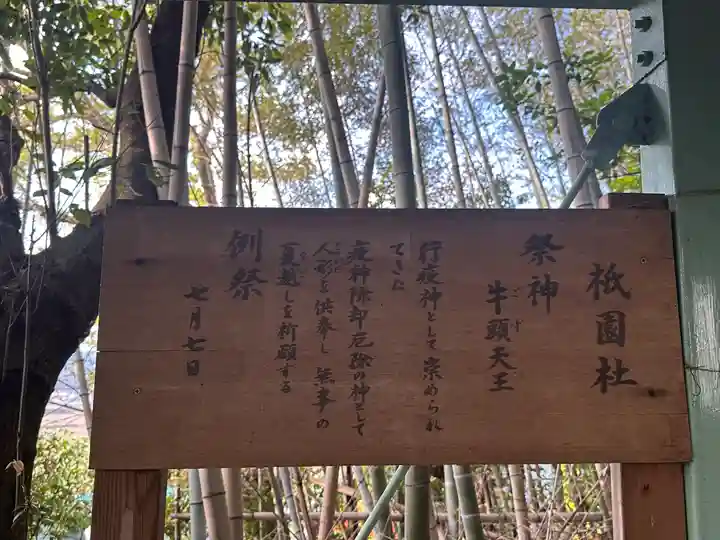 祇園社
祭神
牛頭天王
ごず
行疫神として崇められ
てきた
疫神除却厄除の神として
人形を供奉し無事の
夏越しを祈願する
例祭
七月七日